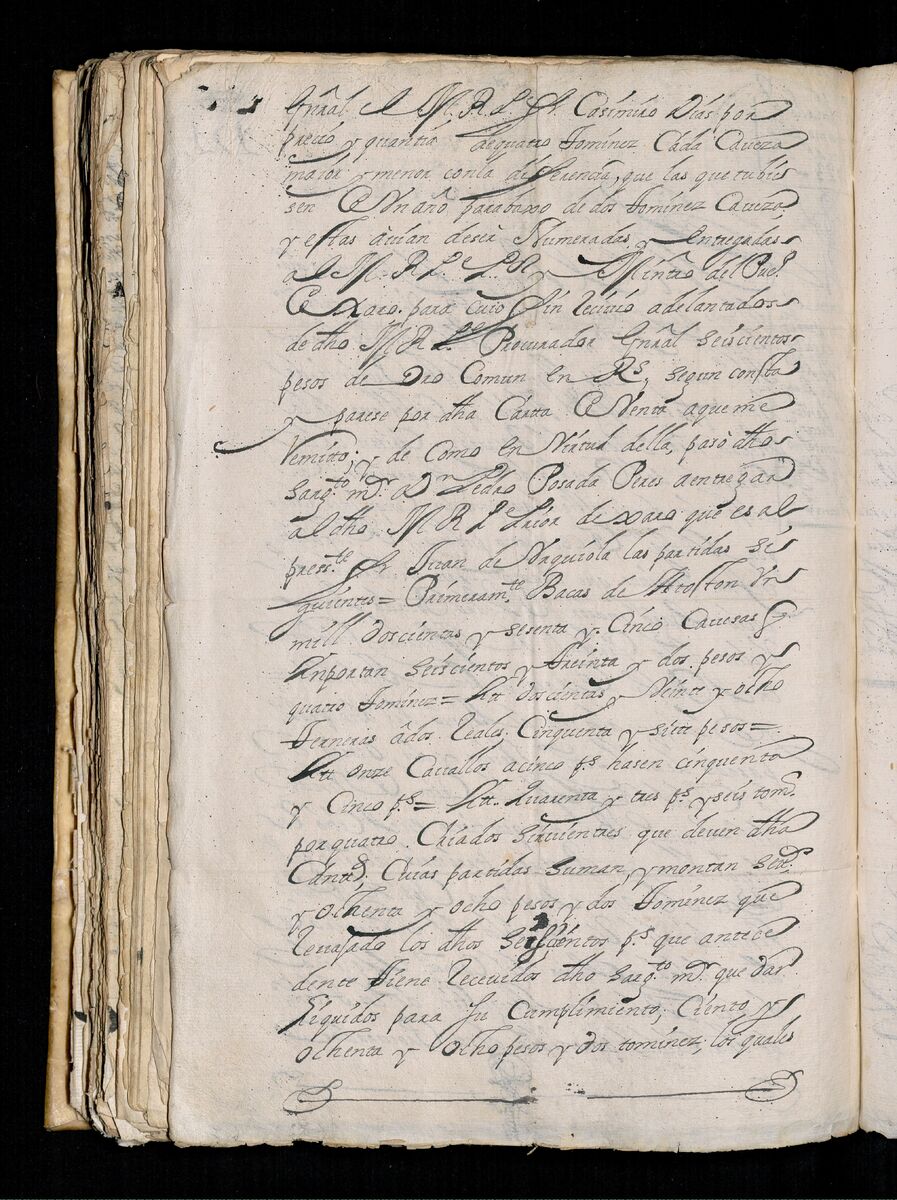 Gnrâl el M. R. P. Fr. Casimiro Dias por
precio y quantia de quatro tominez Cada Caveza
maior y menor con la diferencia, que las que tubie
sen de Vn año para baxo de dos tominez Caveza
y estas avian de ser Numeradas, y entregadas
al M. R. Pe. Pr. y Minrô del Pueo
de Xaro. para cuio fin recivio adelantados
de dho M R Pe. Procurador Gnrâl seiscientos
pesos de Oro Comun en Rs, segun consta
y parese por dha Cartta de Venta a que me
remitto; y de Como en Virtud della, paso dho
sargto mr. Dn Pedro Posada Peres a entregar
al dho M R Pe Prior de Xaro que es al
presente Fr Juan de Vrquiola las partidas si
guientes= Primeramte Bacas de Hroston Vn
mill doscientas y sesenta y Cinco Cavesas q
Inportan seiscientos y treinta y dos pesos y
quatro tominez= Ytt doscientas y Veinte y ocho
terneras â dos reales Cinquenta y siete pesos=
Ytt onze Cavallos a cinco ps hasen cinquenta
y Cinco ps= Ytt. Quarenta y tres ps y seis tom.
por quatro Criados sirvientes que deven dha
Cantd. Cuias partidas suman, y montan setes.
y ochenta y ocho pesos y dos tominez que
revajado los dhos seiscientos ps que antece
dente tiene recevidos dho sargto mr. quedan
liquidos para su Cumplimiento, Ciento y
ochenta y ocho pesos y dos tominez, los quales